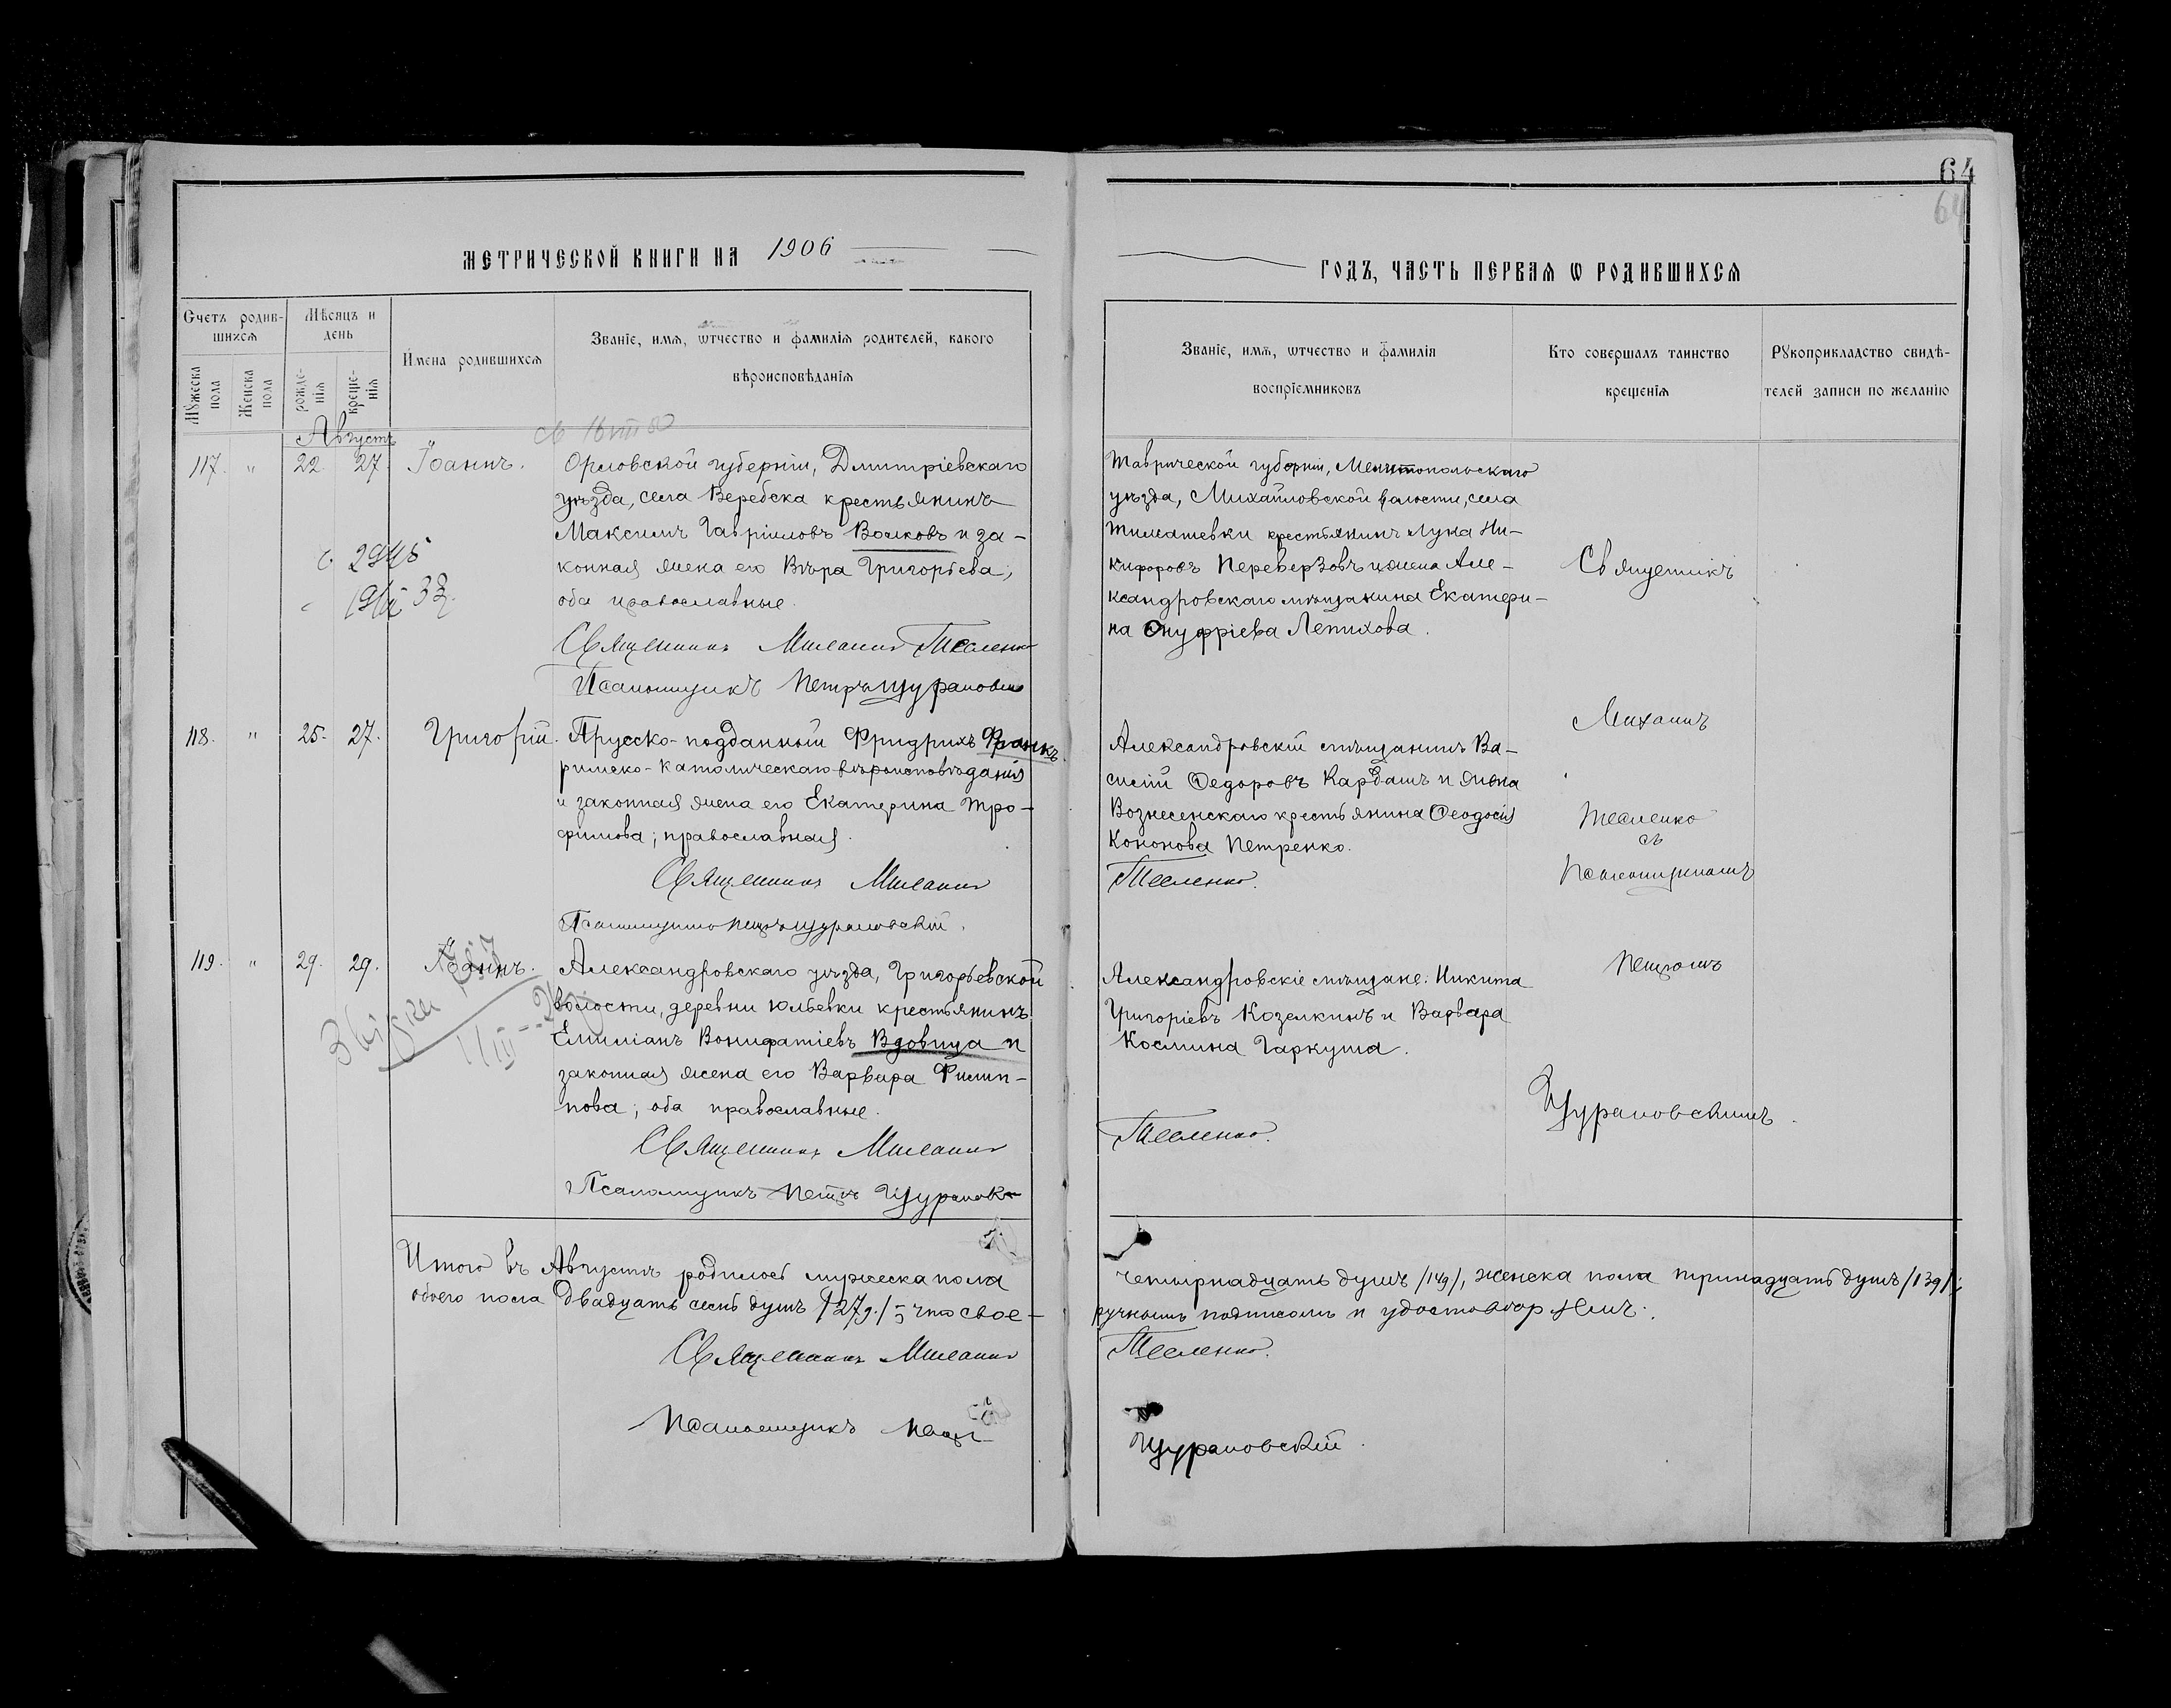 64
64
МЕТРИЧЕСКОЙ КНИГИ НА 1906
ГОДЪ, ЧАСТЬ ПЕРВАЯ Ѡ РОДИВШИХСЯ
Счетъ родив-
шихся
Мѣсяцъ и
день
Мужеска
пола
Женска
пола
рожде-
нія
креще-
нія
Имена родившихся
Званіе, имя, ѿтчество и фамилія родителей, какого
вѣроисповѣданія
Званіе, имя, ѿтчество и фамилія
воспріемниковъ
Кто совершалъ таинство
крещенія
Рукоприкладство свидѣ-
телей записи по желанію
Августъ
117. " 22. 27. Іоаннъ.
Орловской губерніи, Дмитріевскаго
уѣзда, села Веребска крестьянинъ
Максимъ Гавріиловъ Волковъ и за-
конная жена его Вѣра Григорьева;
оба православные.
Священникъ Михаилъ Тесленко
Псаломщикъ Петръ Щурановскій
Таврической губерніи, Мелитопольскаго
уѣзда, Михайловской волости, села
Тимашевки крестьянинъ Лука Ни-
кифоровъ Переверзовъ и жена Але-
ксандровскаго мѣщанина Екатери-
на Онуфріева Лепихова.
Священникъ
Михаилъ
Тесленко
съ
Псаломщикомъ
Петромъ
Щурановскимъ.
118. " 25. 27. Григорій.
Прусско-подданный Фридрихъ Франкъ
римско-католическаго вѣроисповѣданія
и законная жена его Екатерина Тро-
фимова; православная.
Священникъ Михаилъ
Псаломщикъ Петръ Щурановскій.
Александровскій мѣщанинъ Ва-
силій Ѳедоровъ Кардашъ и жена
Вознесенскаго крестьянина Ѳеодосія
Кононова Петренко.
Тесленко.
119. " 29. 29. Іоаннъ.
Александровскаго уѣзда, Григорьевской
волости, деревни Юльевки крестьянинъ
Емиліанъ Вонифатіевъ Вдовица и
законная жена его Варвара Филип-
пова; оба православные.
Священникъ Михаилъ
Псаломщикъ Петръ Щурановс
Александровскіе мѣщане: Никита
Григоріевъ Козелкинъ и Варвара
Космина Гаркуша.
Тесленко.
Итого въ Августѣ родилось мужеска пола четырнадцать душъ /14д/, женска пола тринадцать душъ /13д/;
обоего пола двадцать семь душъ /27д./; что свое-ручнымъ подписомъ и удостовѣряемъ.
Священникъ Михаилъ Тесленко.
Псаломщикъ Петръ Щурановскій.